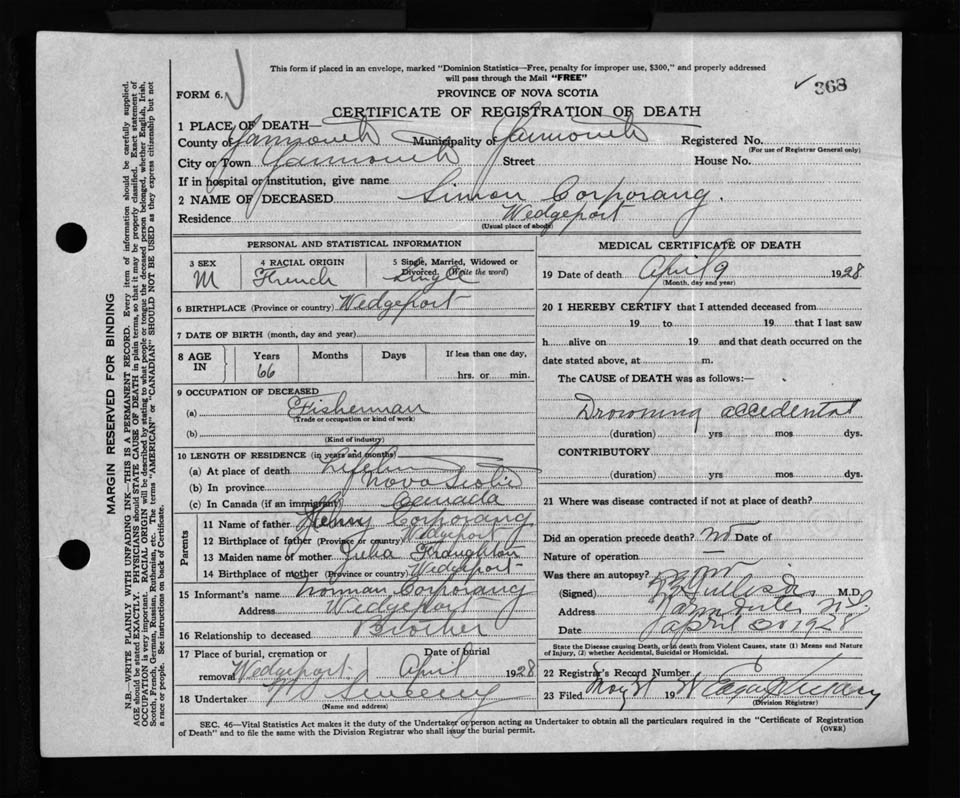 This form if placed in an envelope, marked "Dominion Statistics—Free, penalty for improper use, $300," and properly addressed
will pass through the Mail "FREE"
FORM 6.
PROVINCE OF NOVA SCOTIA
368
CERTIFICATE OF REGISTRATION OF DEATH
1 PLACE OF DEATH—
County of Yarmouth Municipality of Yarmouth Registered No.
(For use of Registrar General only)
City or Town Yarmouth Street House No.
If in hospital or institution, give name
2 NAME OF DECEASED Simon Corporang.
Residence Wedgeport
(Usual place of abode)
PERSONAL AND STATISTICAL INFORMATION
3 SEX 4 RACIAL ORIGIN 5 Single, Married, Widowed or
Divorced. (Write the word)
M French Single
6 BIRTHPLACE (Province or country) Wedgeport
7 DATE OF BIRTH (month, day and year)
8 AGE IN Years Months Days If less than one day,
66 hrs. or min.
9 OCCUPATION OF DECEASED
(a) Fisherman
(Trade or occupation or kind of work)
(b)
(Kind of industry)
10 LENGTH OF RESIDENCE (in years and months)
(a) At place of death Lifetime
(b) In province Nova Scotia
(c) In Canada (if an immigrant) Canada
Parents
11 Name of father Henry Corporang
12 Birthplace of father (Province or country) Wedgeport
13 Maiden name of mother Julia
14 Birthplace of mother (Province or country) Wedgeport
15 Informant's name Norman Corporang
Address Wedgeport
16 Relationship to deceased Brother
17 Place of burial, cremation or Date of burial
removal Wedgeport. April 1928
18 Undertaker Sweeny
(Name and address)
MEDICAL CERTIFICATE OF DEATH
19 Date of death April 9 1928
(Month, day and year)
20 I HEREBY CERTIFY that I attended deceased from
19 to 19 that I last saw
h alive on 19 and that death occurred on the
date stated above, at m.
The CAUSE of DEATH was as follows:—
Drowning accedental
(duration) yrs mos dys.
CONTRIBUTORY
(duration) yrs mos dys.
21 Where was disease contracted if not at place of death?
Did an operation precede death? no Date of
Nature of operation —
Was there an autopsy?
(Signed) M.D.
Address
Date April 30 1928
State the Disease causing Death, or in death from Violent Causes, state (1) Means and Nature
of Injury, (2) whether Accidental, Suicidal or Homicidal.
22 Registrar's Record Number
23 Filed May 31 19
(Division Registrar)
SEC. 46—Vital Statistics Act makes it the duty of the Undertaker or person acting as Undertaker to obtain all the particulars required in the "Certificate of Registration
of Death" and to file the same with the Division Registrar who shall issue the burial permit.
(OVER)
MARGIN RESERVED FOR BINDING
N.B.—WRITE PLAINLY WITH UNFADING INK—THIS IS A PERMANENT RECORD. Every item of information should be carefully supplied.
AGE should be stated EXACTLY. PHYSICIANS should STATE CAUSE OF DEATH in plain terms, so that it may be properly classified. Exact statement of
OCCUPATION is very important. RACIAL ORIGIN will be described by stating to what people or tongue the deceased person belonged, whether English, Irish,
Scotch, French, German, Russian, Ruthenian, etc. The terms "AMERICAN" or "CANADIAN" SHOULD NOT BE USED as they express citizenship but not
a race or people. See instructions on back of Certificate.